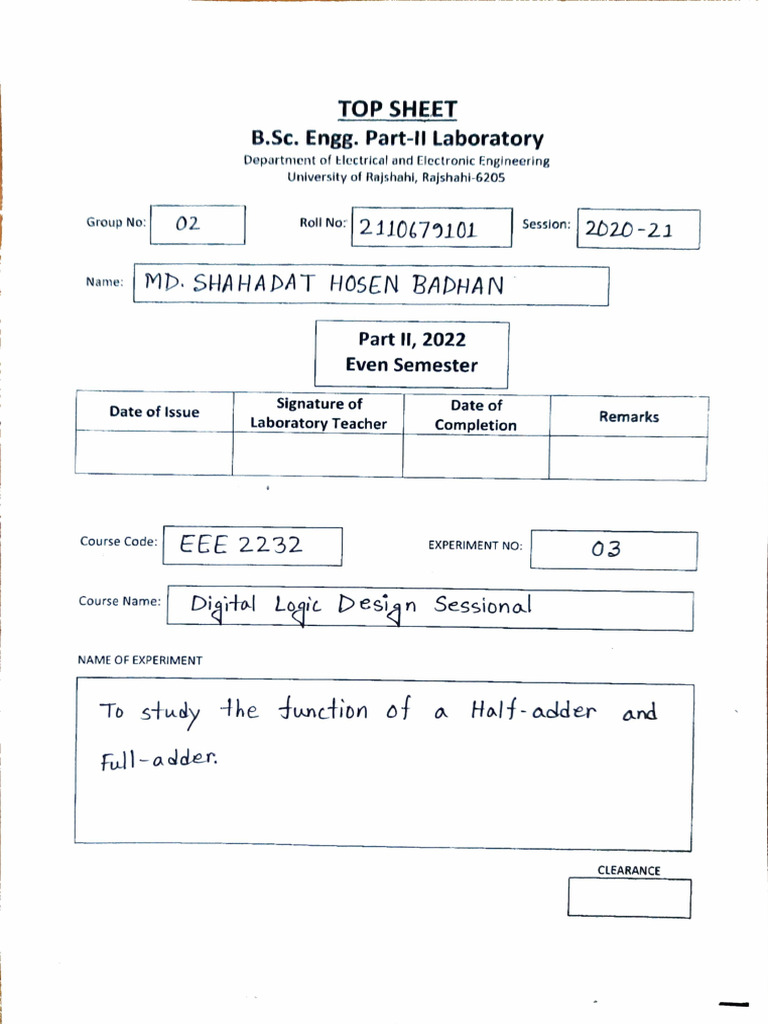 TOP SHEET
B.Sc. Engg. Part-II Laboratory
Department of Electrical and Electronic Engineering
University of Rajshahi, Rajshahi-6205
Group No: 02 Roll No: 2110679101 Session: 2020-21
Name: MD. SHAHADAT HOSEN BADHAN
Part II, 2022
Even Semester
Date of Issue Signature of Laboratory Teacher Date of Completion Remarks
Course Code: EEE 2232 EXPERIMENT NO: 03
Course Name: Digital Logic Design Sessional
NAME OF EXPERIMENT
To study the function of a Half-adder and
Full-adder.
CLEARANCE